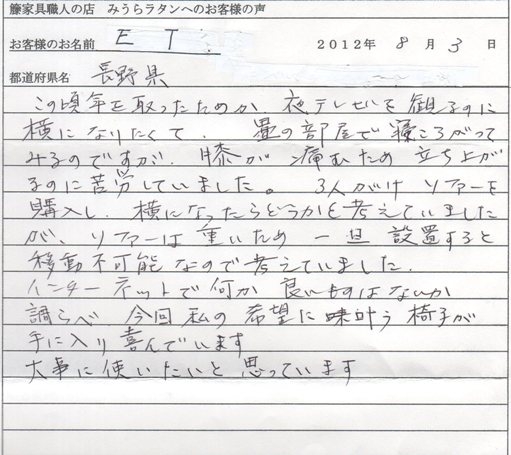 籐家具職人の店 みうらラタンへのお客様の声
お客様のお名前 E T. 2012年 8月 3日
都道府県名 長野県
この頃年を取ったためか 夜テレビを観るのに
横になりたくて、畳の部屋で寝ころがって
みるのですが、膝が痛むため立ち上が
るのに苦労していました。3人がけソファーを
購入し、横になったらどうかと考えていました
が、ソファーは重いため一旦設置すると
移動不可能なので考えていました。
インターネットで何か良いものはないか
調らべ 今回私の希望に叶う椅子が
手に入り喜んでいます
大事に使いたいと思っています